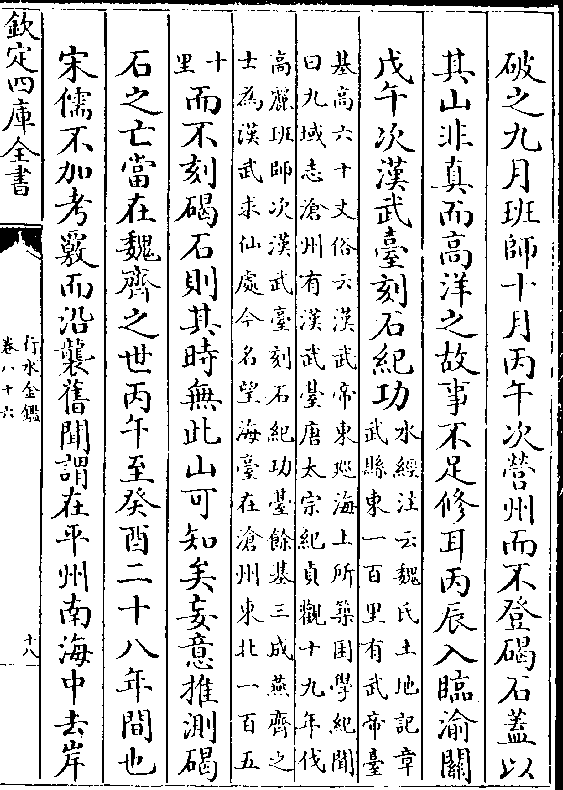 破之九月班師十月丙午次營州而不登碣石蓋以
其山非真而高洋之故事不足修耳丙辰入臨渝關
戊午次漢武臺刻石紀功
水經注云魏氏土地記章
武縣東一百里有武帝臺
基高六十丈俗云漢武帝東廵海上所築困學紀聞
曰九域志滄州有漢武䑓唐太宗紀貞觀十九年伐
高麗班師次漢武臺刻石紀功臺餘基三成燕齊之
士為漢武求仙處今名望海臺在滄州東北一百五
十
里
而不刻碣石則其時無此山可知矣妄意推測碣
石之亡當在魏齊之世丙午至癸酉二十八年間也
宋儒不加考覈而沿襲舊聞謂在平州南海中去岸
欽定四庫全書
行水金鑑
卷八十六
十八